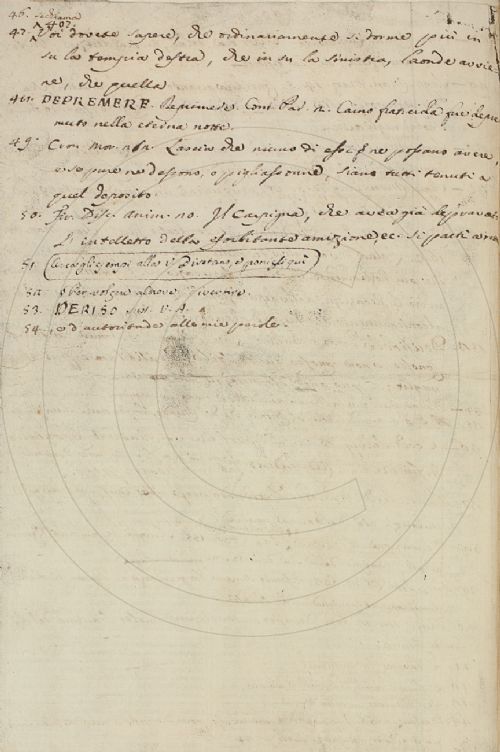 46. sediamo
^ 402.
47. Voi dovete sapere, che ordinariamente si dorme più in
su la tempia destra, che in su la sinistra, laonde avvie-
ne, che quella
48. DEPREMERE. Reprimere. Com. Par. n. Caino fratricida fu depre-
muto nella eterna notte.
49. Cron. Mor. Lascia che niuno di essi ne possano avere,
e se pure ne desono, o pigliassonne, siano tutti tenuti a
quel deposito.
50. Fir. Disc. Anim. 10. Il Carpigna, che avea già depravato
l'intelletto della esorbitante ambizione, ec. si partì
51. alla V. Disotano, e ponersi qui
52. altrove,
53. DERISO V. A.
54. ed autorità alle mie parole.